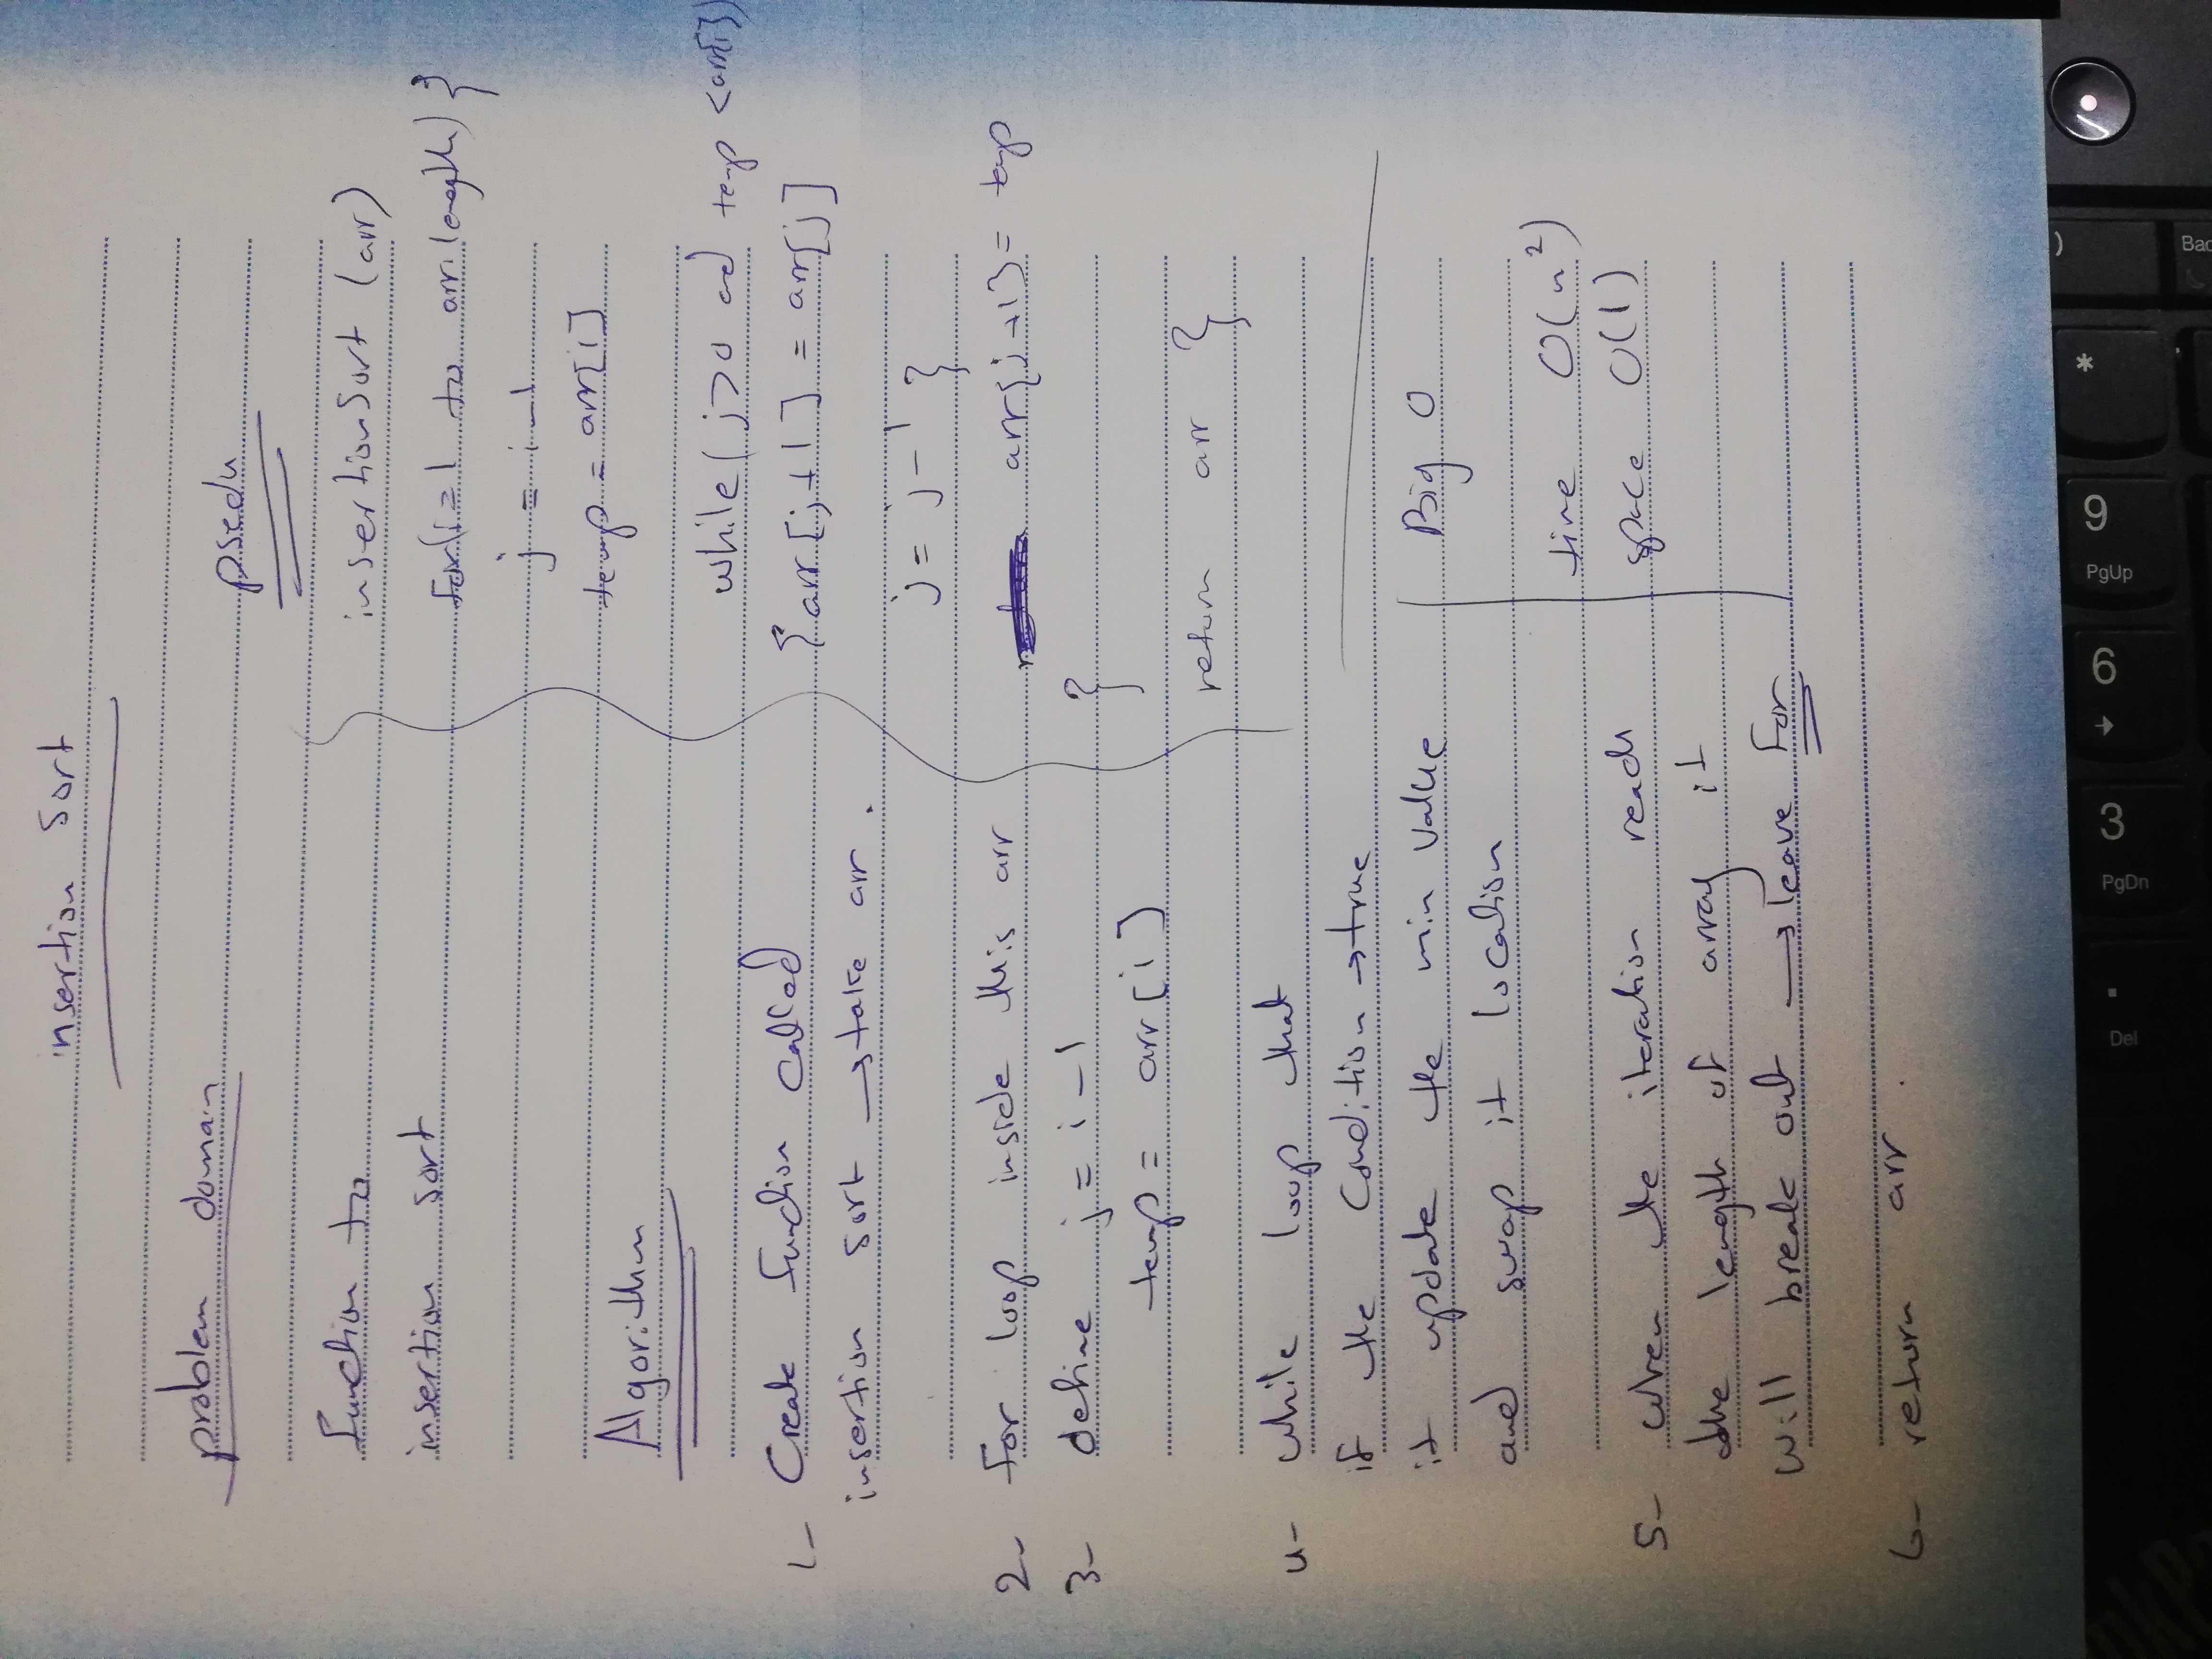 insertion sort
problem domain
function to
insertion sort
Algorithm
1- Create function called
insertion sort → take arr.
2- for loop inside this arr
3- define j = i - 1
temp = arr[i]
4- while loop that
if the condition → true
it update the min value
and swap it location
5- when the iteration reach
the length of array it
will break out → leave for
6- return arr.
psedu
insertionSort (arr)
for(i=1 to arr.length) {
j = i-1
temp = arr[i]
while( j>0 and temp < arr[i])
{ arr[j+1] = arr[j]
j = j-1 }
arr[j+1] = temp
}
return arr }
Big O
time O(n²)
space O(1)
)
Bac
*
9
PgUp
6
→
3
PgDn
.
Del